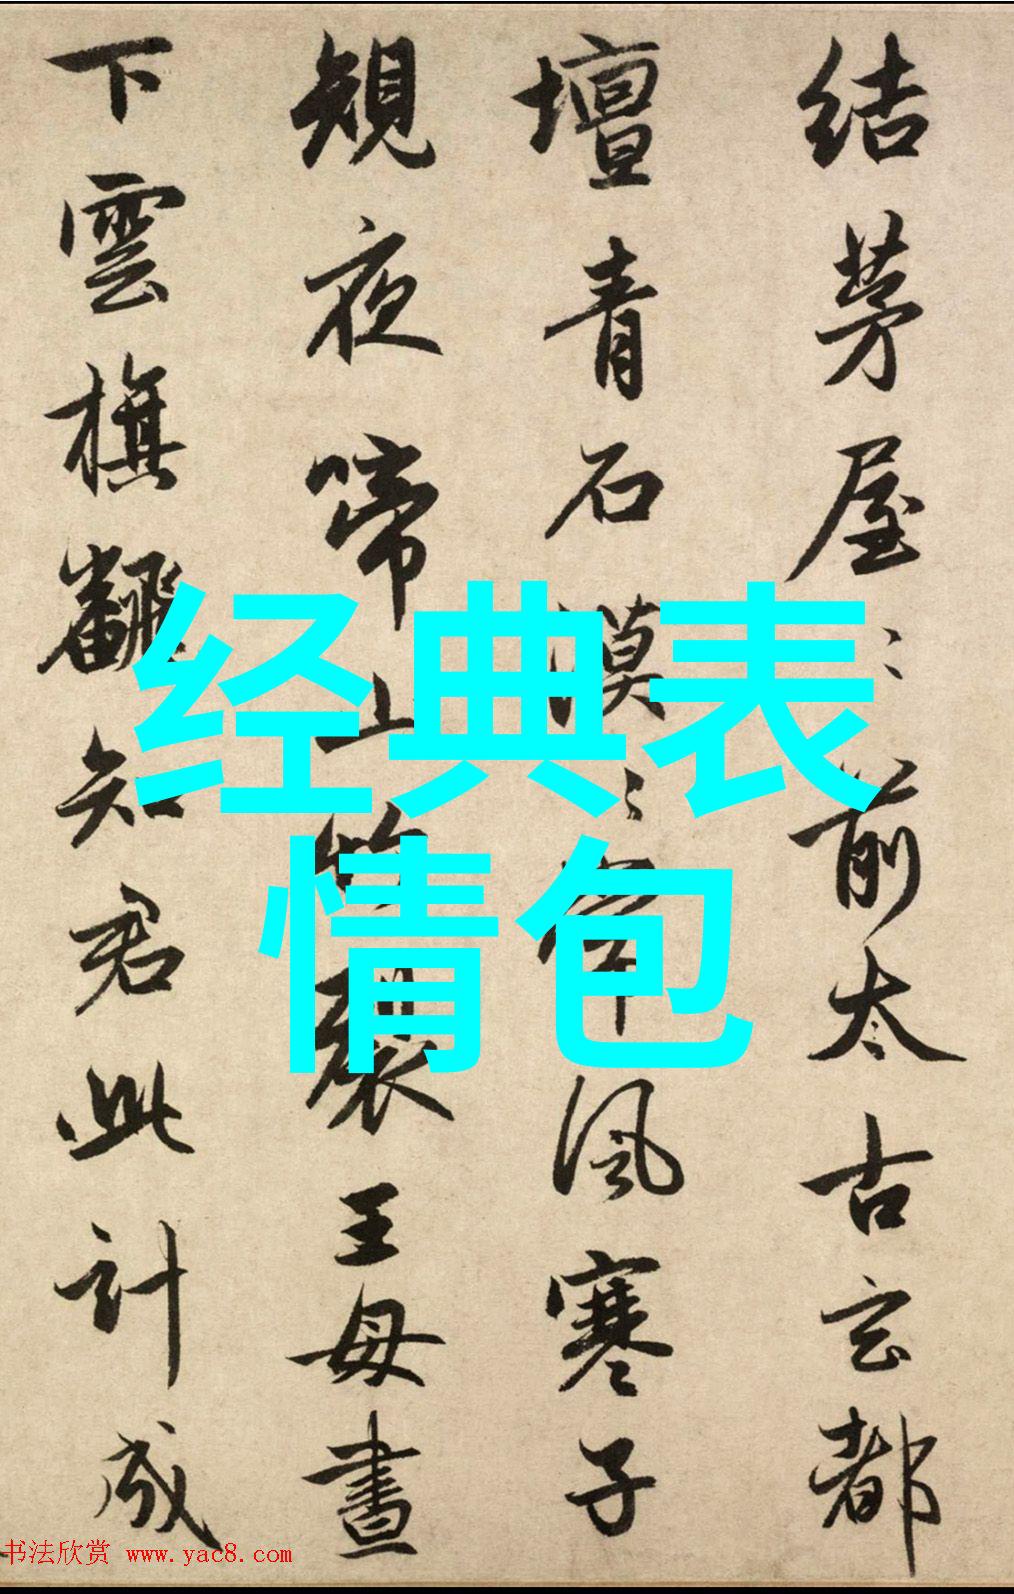 結茅屋〻前太古玄都
壇青石漠〻常風寒子
規夜啼山竹裂王母晝
下雲旗飜知君此計成
经典表
情包
书法欣赏 www.yac8.com